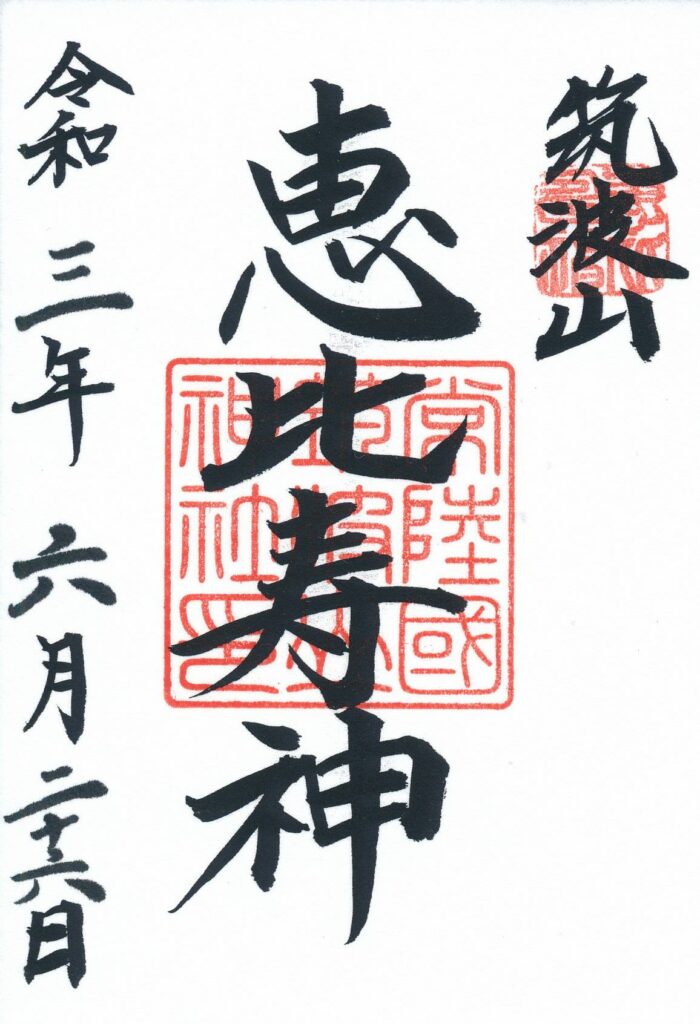 筑波山
恵比寿神
常陸國
筑波山
神社印
令和三年六月二十六日